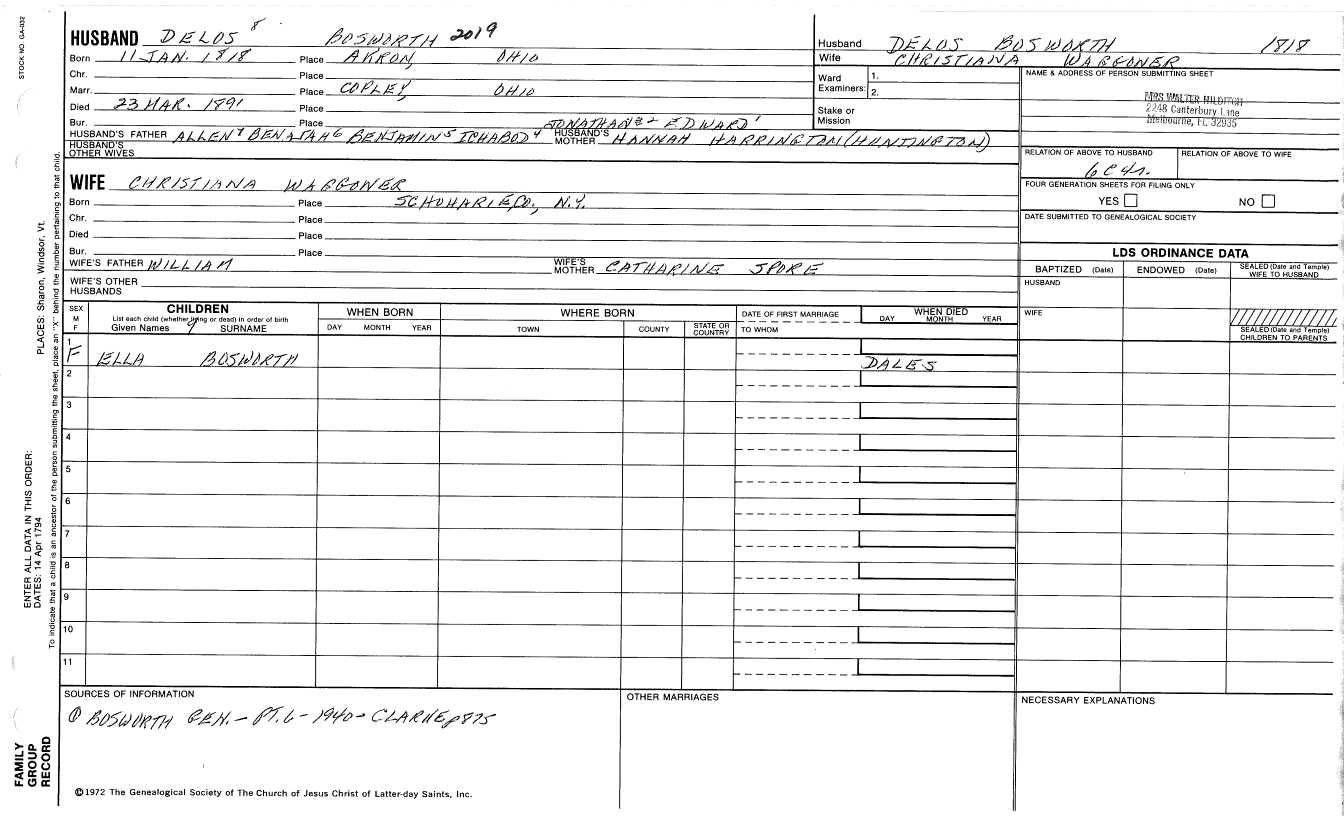 STOCK NO. GA-032
HUSBAND DELOS 8 BOSWORTH 2019
Born 11 JAN. 1818 Place AKRON, OHIO
Chr. Place
Marr. Place COPLEY, OHIO
Died 23 MAR. 1891 Place
Bur. Place JONATHAN 3-2 EDWARD 1
HUSBAND'S FATHER ALLEN 7 BENAJAH 6 BENJAMIN 5 ICHABOD 4 HUSBAND'S MOTHER HANNAH HARRINGTON (HUNTINGTON)
HUSBAND'S OTHER WIVES
WIFE CHRISTIANA WAGGONER
Born Place SCHOHARIE CO., N.Y.
Chr. Place
Died Place
Bur. Place
WIFE'S FATHER WILLIAM WIFE'S MOTHER CATHARINE SPORE
WIFE'S OTHER HUSBANDS
Husband DELOS BOSWORTH 1818
Wife CHRISTIANA WAGGONER
Ward Examiners: 1. 2.
Stake or Mission
NAME & ADDRESS OF PERSON SUBMITTING SHEET
MRS WALTER HILDITCH
2248 Canterbury Lane
Melbourne, FL 32935
RELATION OF ABOVE TO HUSBAND RELATION OF ABOVE TO WIFE
6C4r.
FOUR GENERATION SHEETS FOR FILING ONLY
YES NO
DATE SUBMITTED TO GENEALOGICAL SOCIETY
LDS ORDINANCE DATA
BAPTIZED (Date) ENDOWED (Date) SEALED (Date and Temple) WIFE TO HUSBAND
HUSBAND
WIFE
SEALED (Date and Temple) CHILDREN TO PARENTS
SEX M F
CHILDREN
List each child (whether living or dead) in order of birth
Given Names 9 SURNAME
WHEN BORN
DAY MONTH YEAR
WHERE BORN
TOWN COUNTY STATE OR COUNTRY
DATE OF FIRST MARRIAGE
TO WHOM
WHEN DIED
DAY MONTH YEAR
1 F ELLA BOSWORTH DALES
2
3
4
5
6
7
8
9
10
11
SOURCES OF INFORMATION
① BOSWORTH GEN. - PT. 6 - 1940 - CLARKE p875
OTHER MARRIAGES
NECESSARY EXPLANATIONS
©1972 The Genealogical Society of The Church of Jesus Christ of Latter-day Saints, Inc.
FAMILY
GROUP
RECORD
ENTER ALL DATA IN THIS ORDER:
DATES: 14 Apr 1794
PLACES: Sharon, Windsor, Vt.
To indicate that a child is an ancestor of the person submitting the sheet, place an "X" behind the number pertaining to that child.